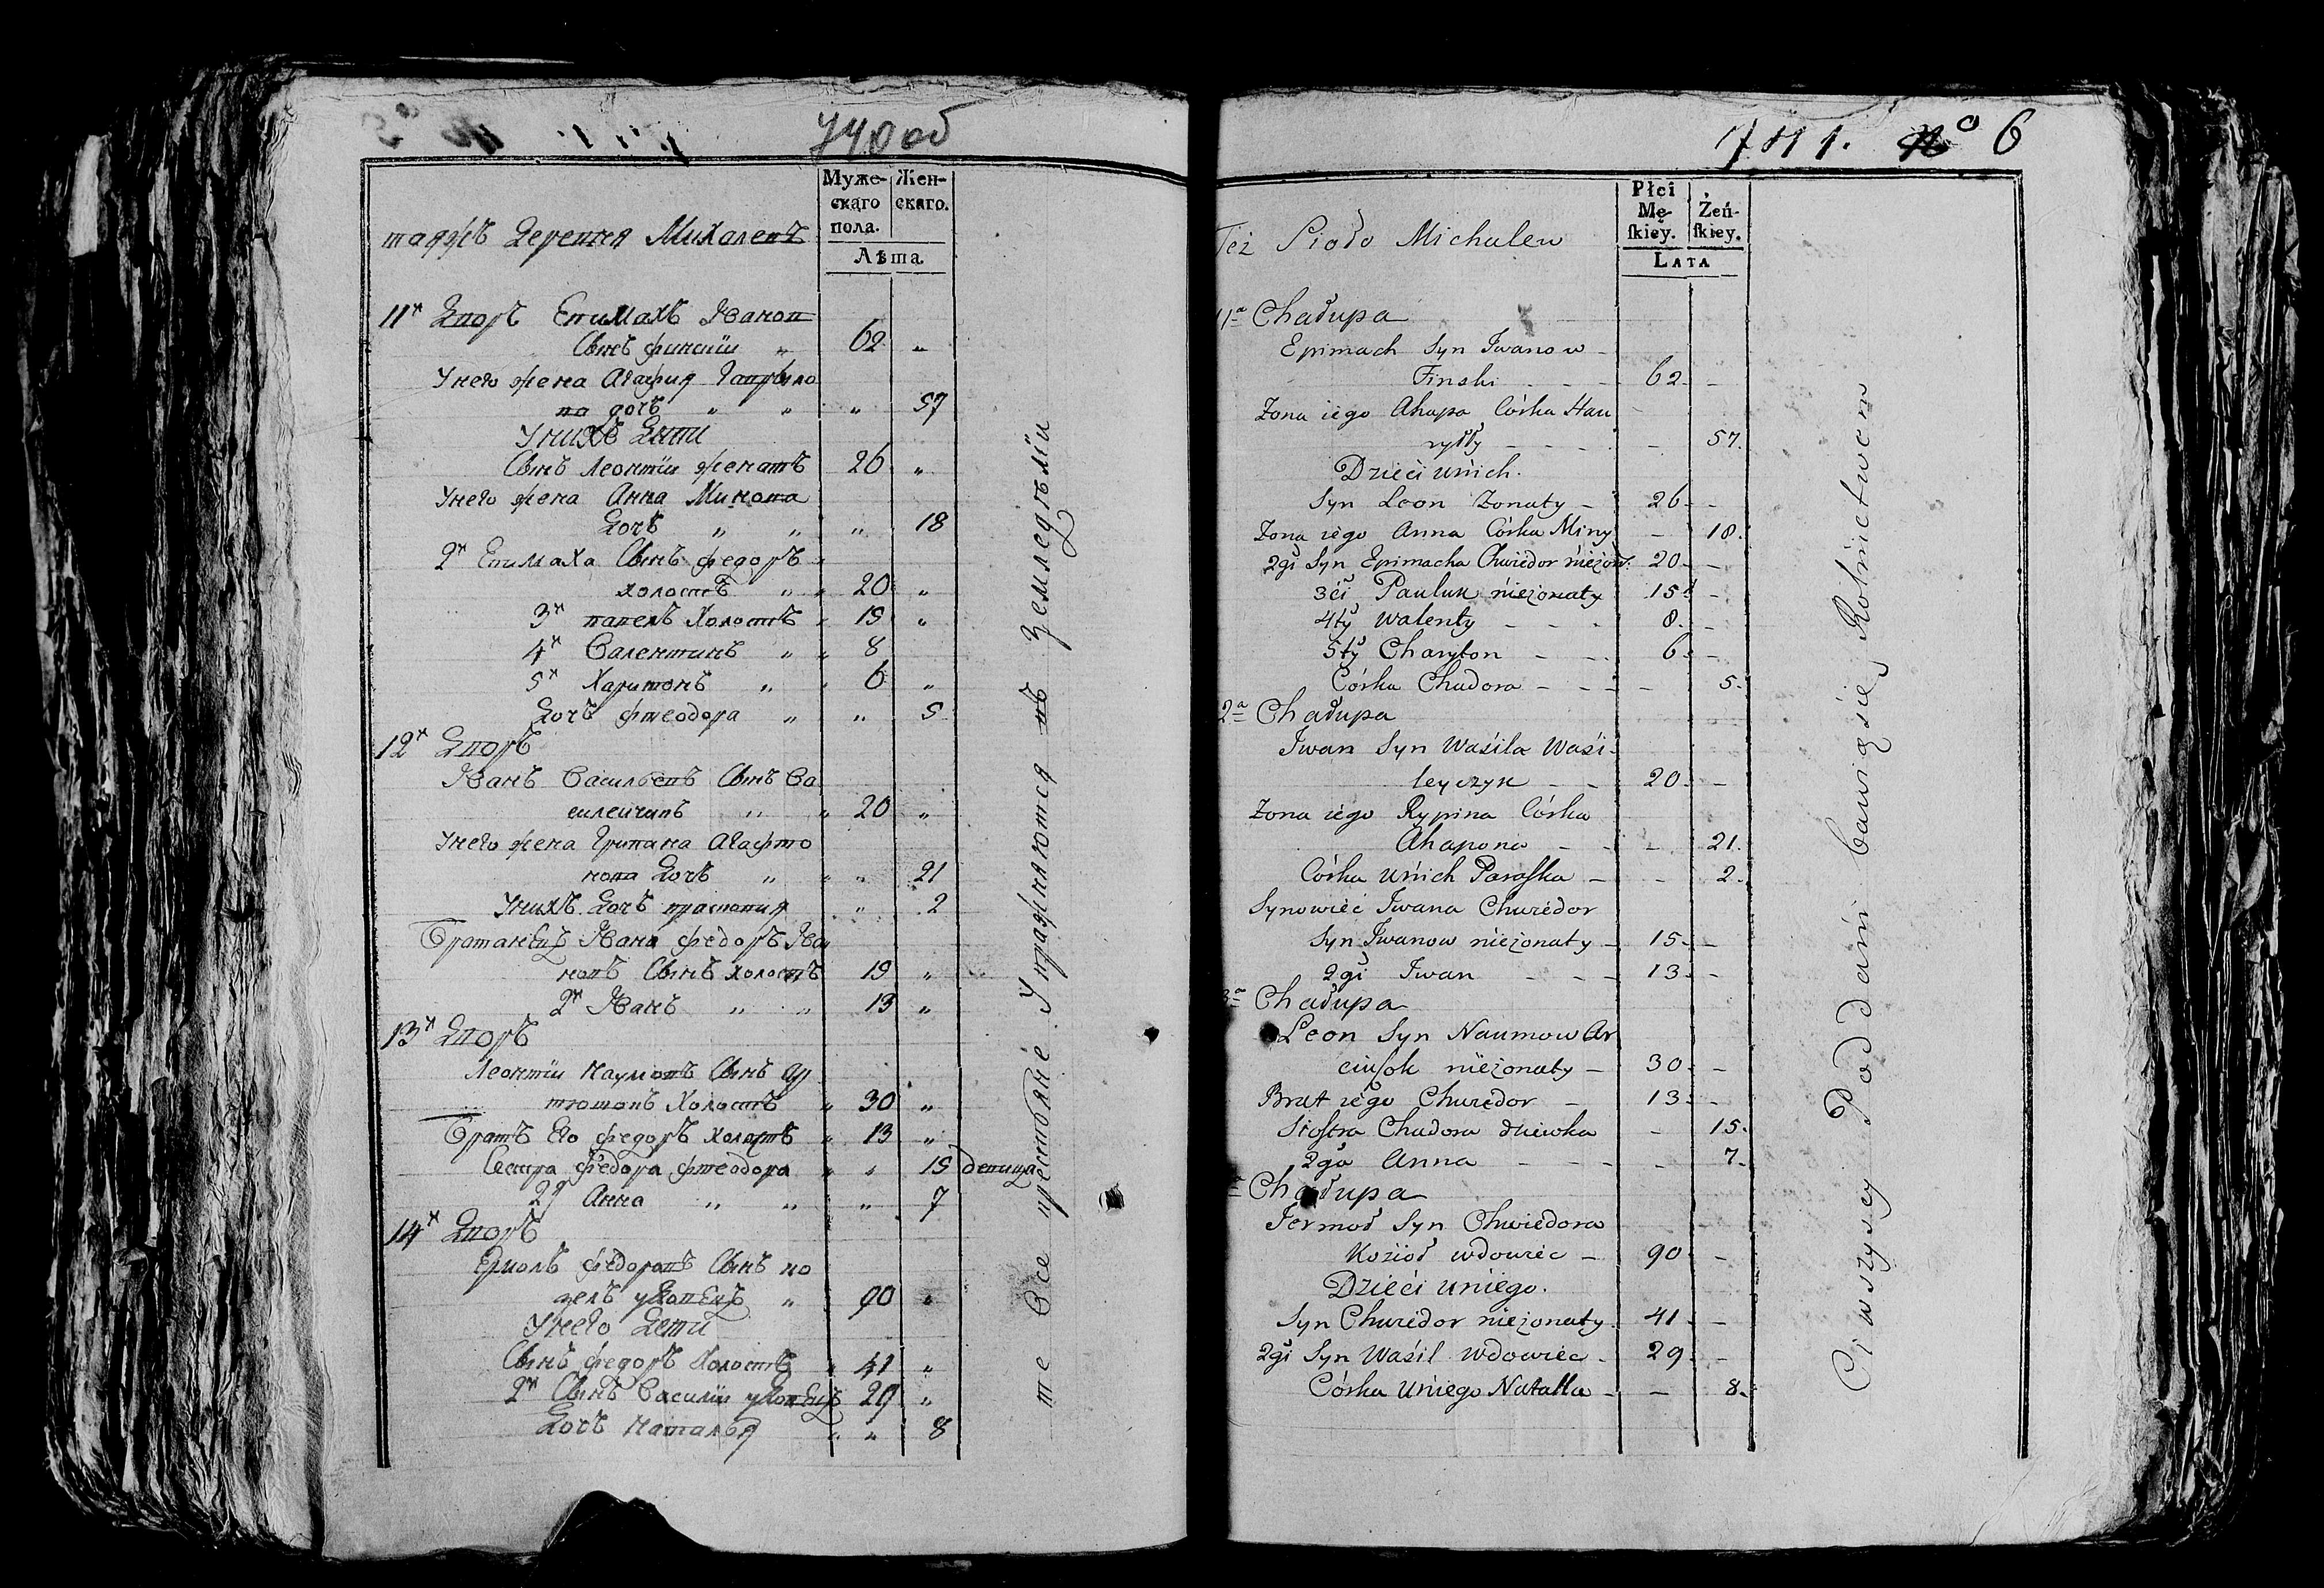 740 об
Муже-
скаго
пола.
Жен-
скаго.
Лѣта
таяжъ Деревня Михалевъ
11х Дворъ Епимахъ Іванов
Сынъ финскій „ 62 „
У него жена Агафия Гаврило
ва дочь „ „ „ 57
У нихъ Дѣти
Сынъ Леонтіи женатъ 26 „
У него жена Анна Минова
Дочь „ „ „ 18
2х Епимаха Сынъ федоръ
холостъ „ „ 20 „
3х павелъ Холостъ „ 15 „
4х Валентинъ „ „ 8
5х Харитонъ „ „ 6 „
Дочь фтеодора „ „ 5
12х Дворъ
Іванъ Васильевъ Сынъ Ва
силеичикъ „ „ 20 „
У него жена Грипина Агафто
нова Дочь „ „ „ 21
У нихъ Дочь прасковия „ 2
Братанецъ Івана федоръ Іва
новъ Сынъ холостъ 15 „
2х Іванъ „ „ 13 „
13х Дворъ
Леонтіи Наумовъ Сынъ Ар
тюшокъ Холостъ „ 30 „
Братъ Его федоръ холостъ „ 13 „
Сестра федора фтеодора „ „ 15 девица
2я Анна „ „ „ 7
14х Дворъ
Ермолъ федоровъ Сынъ ко
зелъ удовецъ „ 90 „
У него Дети
Сынъ федоръ Холостъ „ 41 „
2х Сынъ Василіи удовецъ 29 „
Дочь Наталья „ „ 8
те Все крестьяне Упражняются въ Земледѣліи
741. No 6
Płci
Mę-
skiey.
Żeń-
skiey.
LATA
Też Sioło Michalew
11a Chałupa
Epimach Syn Iwanow -
Finski - - - 62 - -
Żona iego Ahapa Córka Haw
ryłły - - - - 57.
Dzieci u nich.
Syn Leon Żonaty - 26 - -
Żona iego Anna Córka Miny - 18.
2gi Syn Epimacha Chwiedor nieżon. 20 - -
3ci Pauluk nieżonaty 15 -
4ty Walenty - - - 8 - -
5ty Charyton - - 6 - -
Córka Chudora - - - - 5 -
2a Chałupa
Iwan Syn Wasila Wasi-
leyczyk - - 20 - -
Żona iego Rypina Córka
Ahapona - - - 21.
Córka u nich Paraska - - 2.
Synowiec Iwana Chwiedor
Syn Iwanow nieżonaty - 15 - -
2gi Iwan - - - 13 - -
3a Chałupa
Leon Syn Naumow Ar
ciusok nieżonaty - 30 - -
Brat iego Chwiedor - 13 - -
Siostra Chudora dziewka - 15.
2ga Anna - - - - 7 -
Chałupa
Jermoł Syn Chwiedora
Kozioł wdowiec - 90 - -
Dzieci u niego.
Syn Chwiedor nieżonaty 41 - -
2gi Syn Wasil wdowiec - 29 - -
Córka u niego Natalla - - 8.
Ci wszyscy Poddani bawią się Rolnictwem